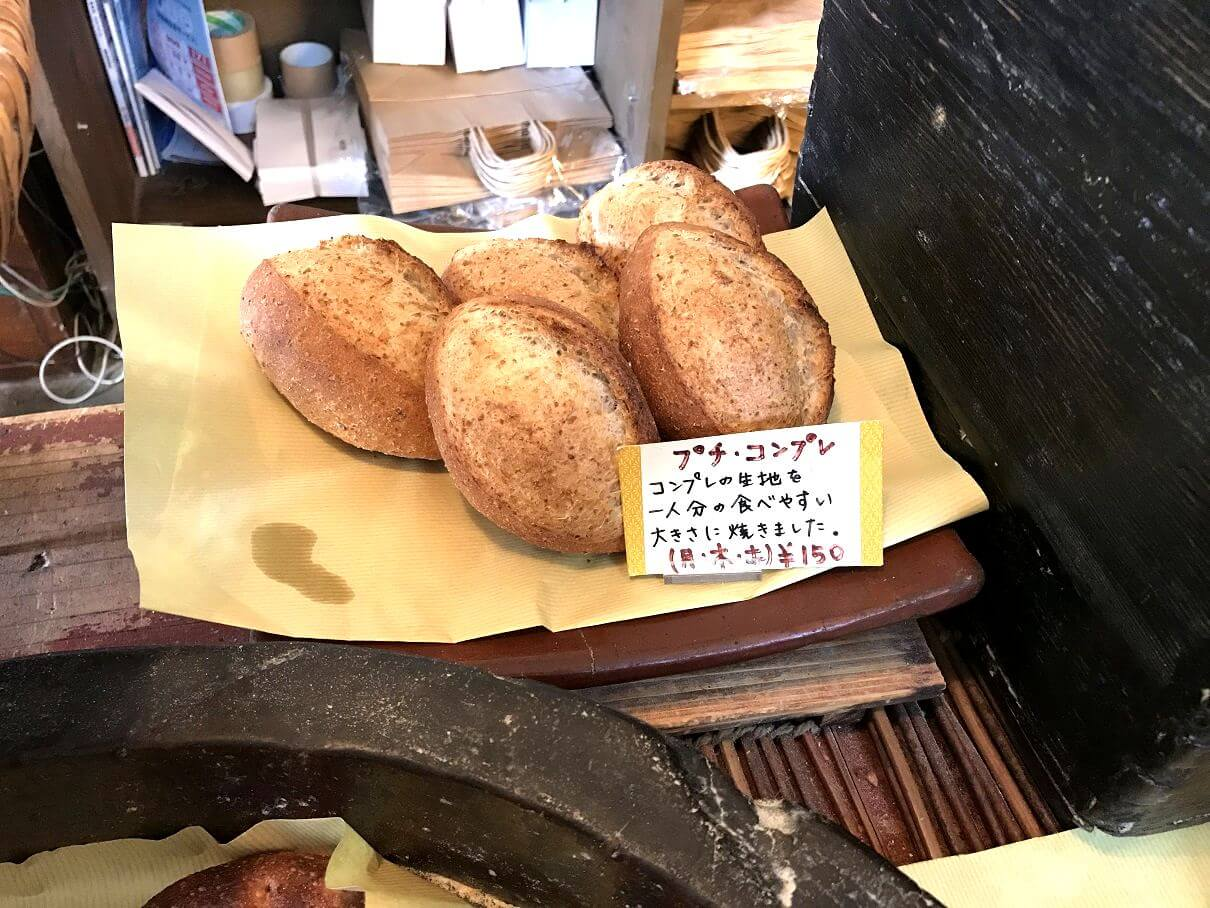 プチ・コンプレ
コンプレの生地を
一人分の食べやすい
大きさに焼きました。
(月・木・土)¥150